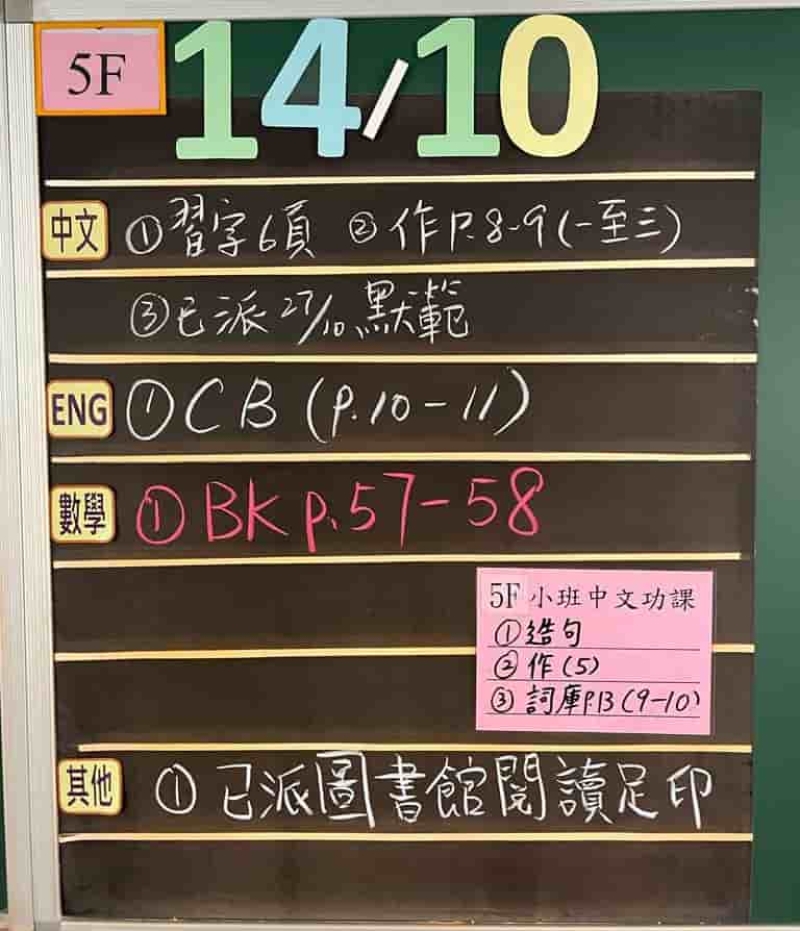 5F 14/10
中文 ①習字6頁 ②作P.8-9(一至三)
③已派27/10默範
ENG ①CB (p.10-11)
數學 ①BK p.57-58
5F小班中文功課
①造句
②作(5)
③詞庫P.13(9-10)
其他 ①已派圖書館閱讀足印